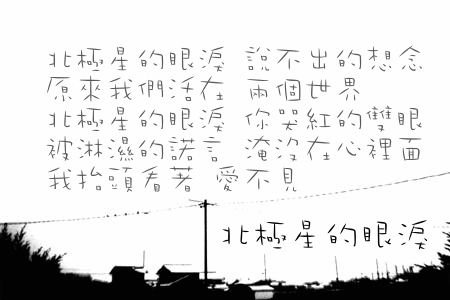 北極星的眼淚 說不出的想念
原來我們活在 兩個世界
北極星的眼淚 你哭紅的雙眼
被淋濕的諾言 淹沒在心裡面
我抬頭看著 愛不見
北極星的眼淚